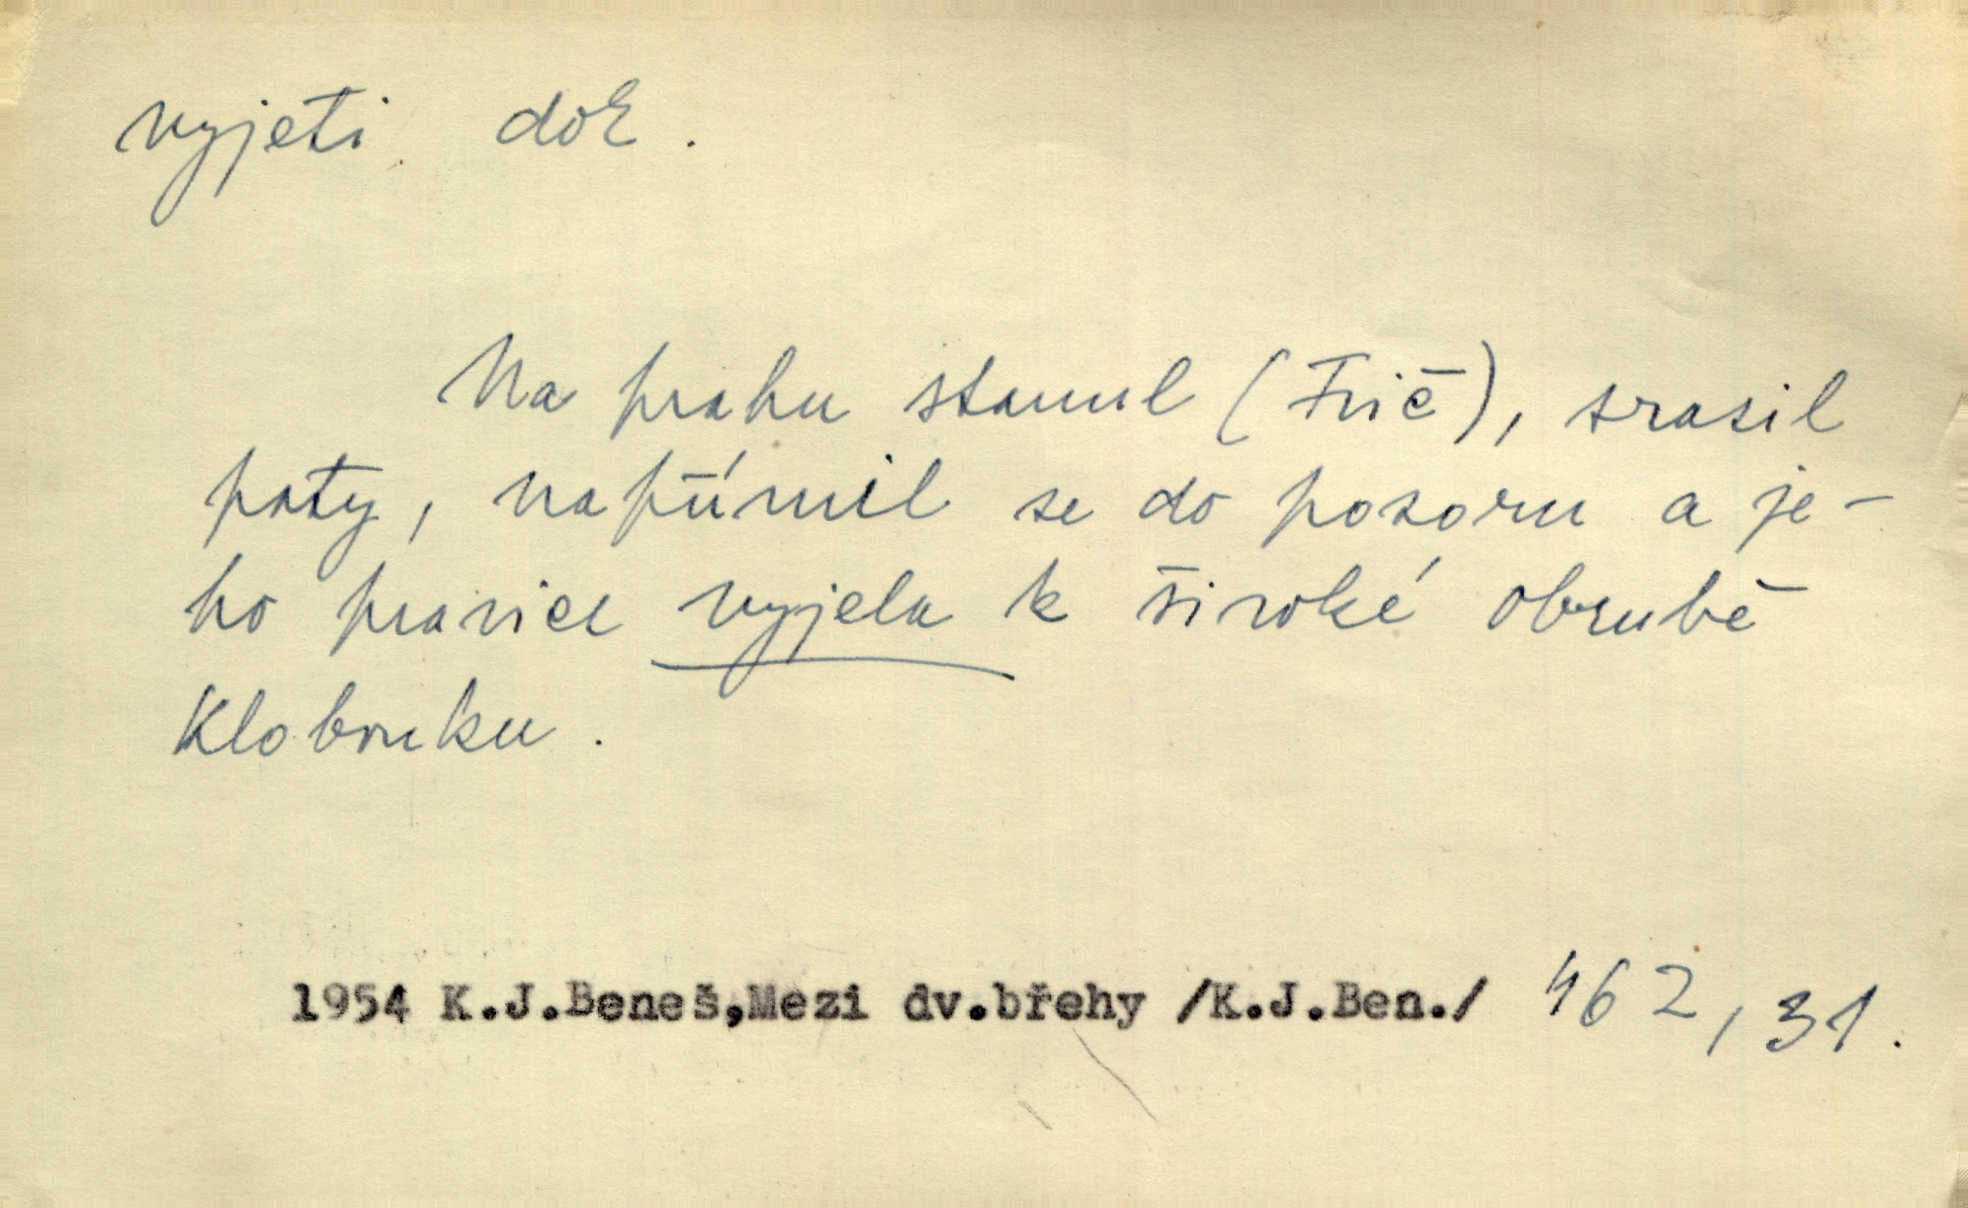 vyjeti dok.
Na prahu stanul (Frič), srazil
paty, napřímil se do pozoru a je-
ho pravice vyjela k široké obrubě
klobouku.
1954 K.J.Beneš,Mezi dv.břehy /K.J.Ben./ 462, 31.